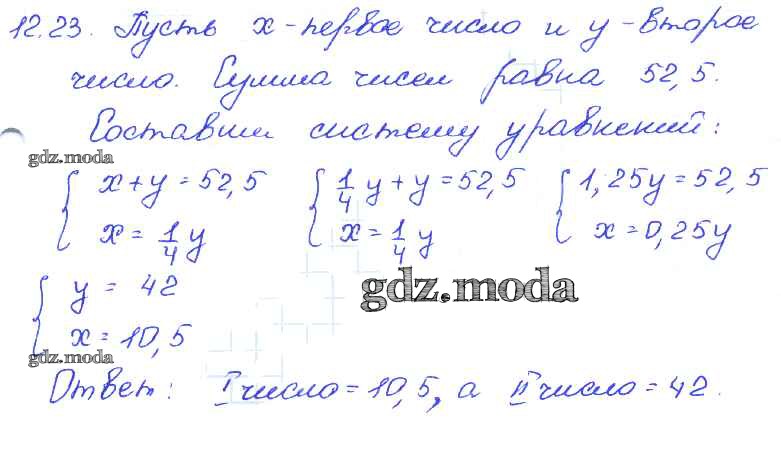 12.23. Пусть x - первое число и y - второе
число. Сумма чисел равна 52,5.
Составим систему уравнений:
gdz.moda
{ x + y = 52,5 { 1/4 y + y = 52,5 { 1,25y = 52,5
x = 1/4 y x = 1/4 y x = 0,25y
{ y = 42
gdz.moda
x = 10,5
gdz.moda
Ответ: I число = 10,5, а II число = 42.